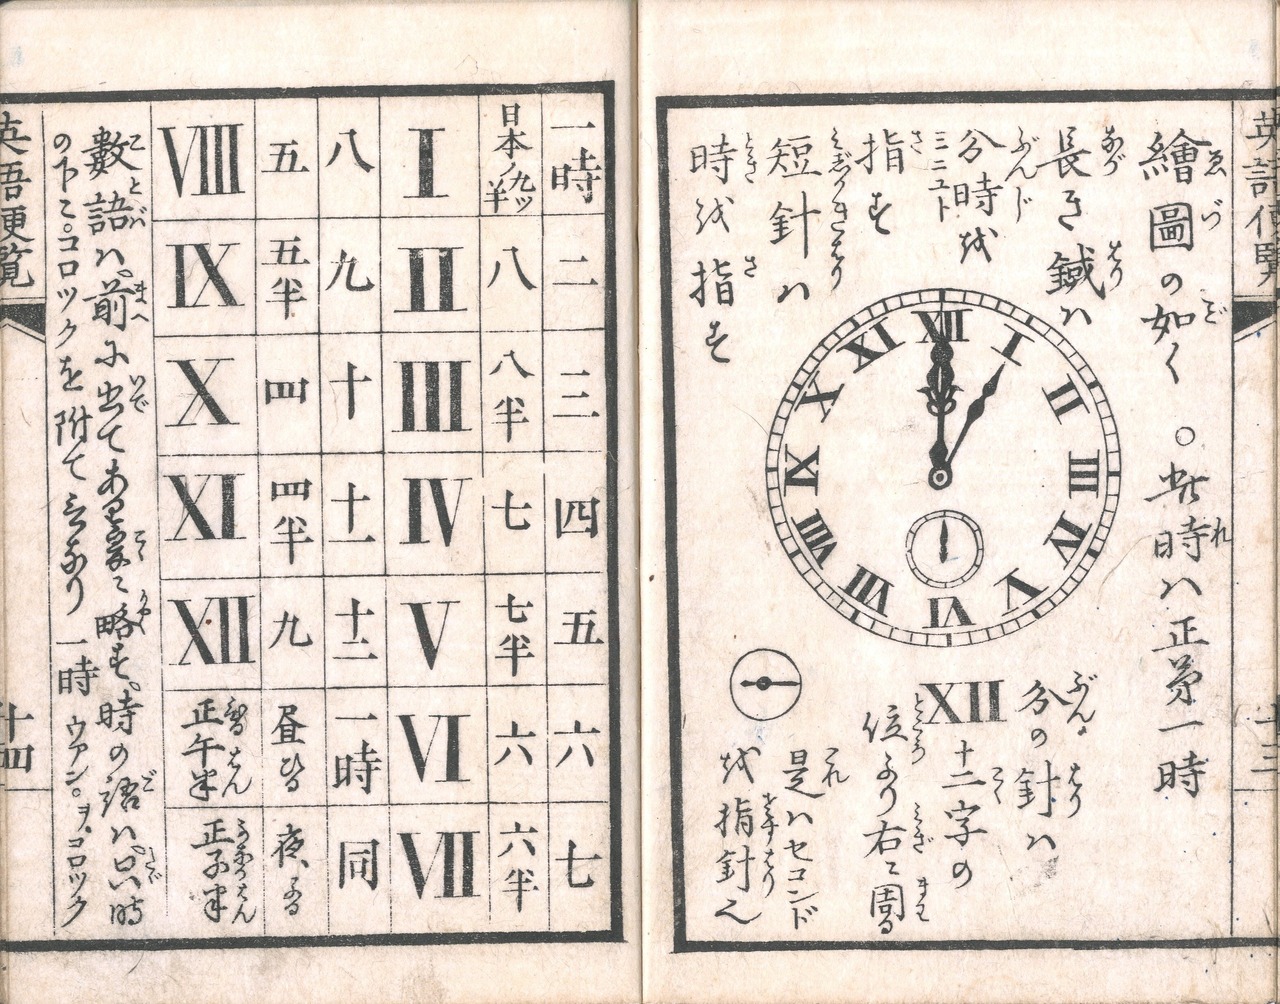 英語便覧
十三
繪圖の如く ○此時ハ正第一時
長き鍼ハ
分時を
ミニュト
指す
短針ハ
時を指す
XII
I
II
III
IV
V
VI
VII
VIII
IX
X
XI
分の針ハ
XII 十二字の
位より右に周る
是ハセコンド
を指針也
一時 二 三 四 五 六 七
日本ノ九ツ半 八 八半 七 七半 六 六半
I II III IV V VI VII
八 九 十 十一 十二 一時 同
五 五半 四 四半 九 昼ひる 夜よる
VIII IX X XI XII 正午半 正子半
數語ハ前に出てあるゆゑに略す時の語ハ只時
の下にコロックを附て云なり 一時 ウアン。ヲ、コロック
英語便覧
十四